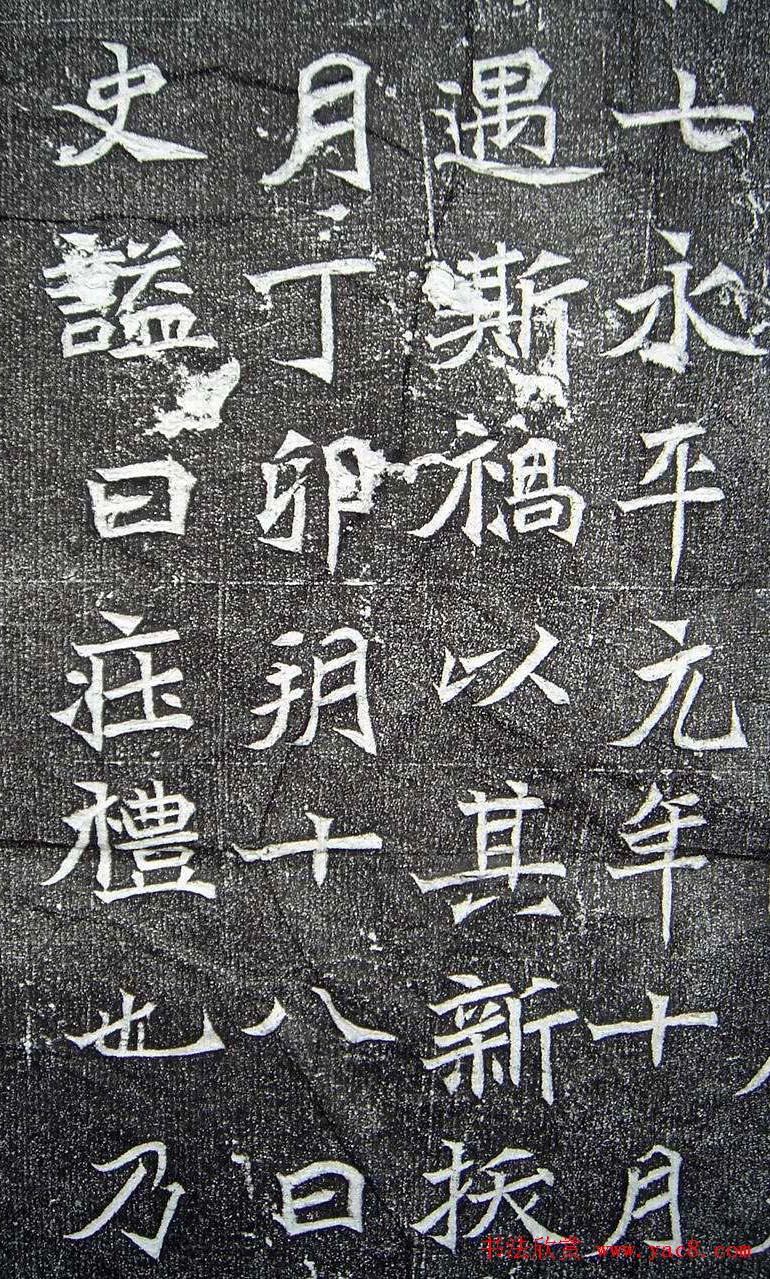 七永平元年十月
遇斯禍以其新
月丁卯朔十八日
史謚曰莊禮也乃
书法欣赏 www.yac8.com